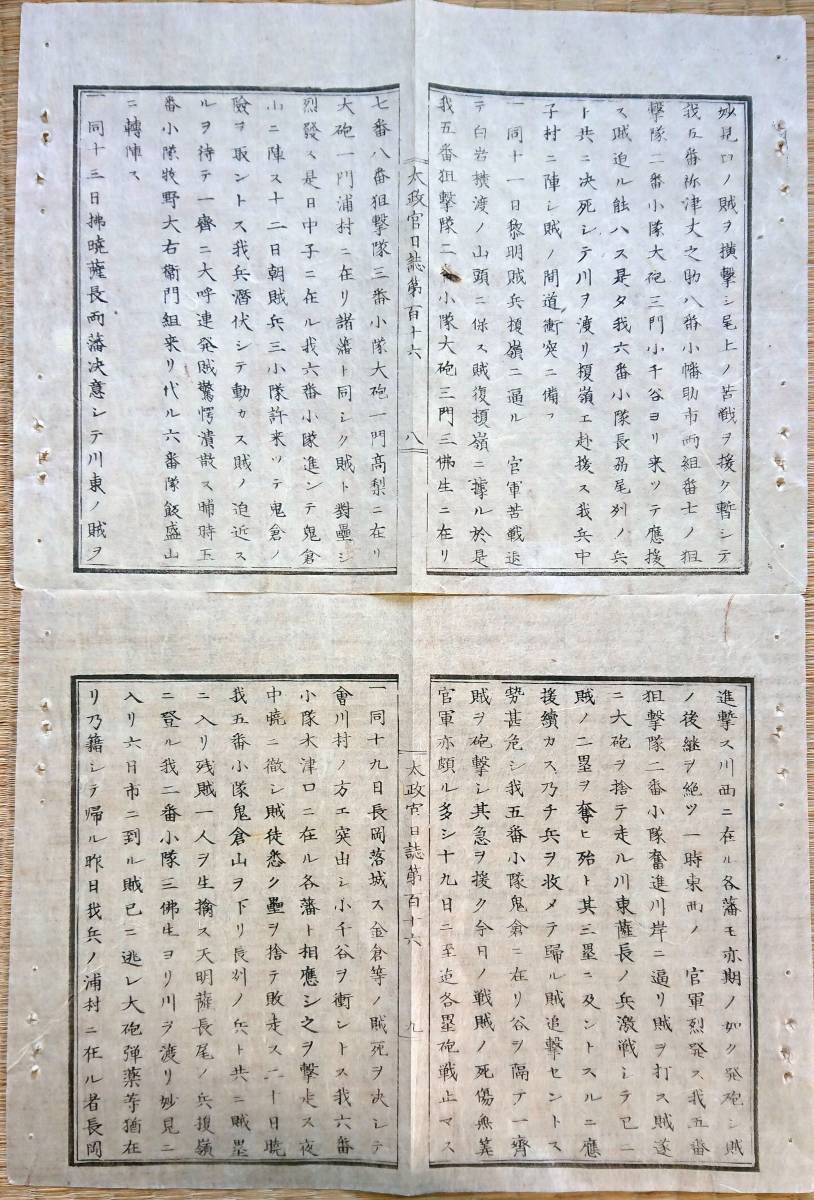 妙見口ノ賊ヲ横撃シ尾上ノ苦戦ヲ援ク暫シテ
我五番祢津丈之助八番小幡助市両組番士ノ狙
撃隊二番小隊大砲三門小千谷ヨリ来ツテ應援
ス賊迫ル能ハス是夕我六番小隊長尾列ノ兵
ト共ニ决死シテ川ヲ渡リ榎嶺エ赴援ス我兵中
子村ニ陣シ賊ノ間道衝突ニ備フ
一同十一日黎明賊兵榎嶺ニ逼ル 官軍苦戦退
テ白岩横渡ノ山頭ニ保ス賊復榎嶺ニ據ル於是
我五番狙撃隊二番小隊大砲三門三佛生ニ在リ
太政官日誌第百十六 八
七番八番狙撃隊三番小隊大砲一門高梨ニ在リ
大砲一門浦村ニ在リ諸藩ト同シク賊ト對壘シ
烈發ス是日中子ニ在ル我六番小隊進ンテ鬼倉
山ニ陣ス十二日朝賊兵三小隊許来ツテ鬼倉ノ
險ヲ取ントス我兵潜伏シテ動カス賊ノ迫近ス
ルヲ待テ一齊ニ大呼連発賊驚愕潰散ス晡時五
番小隊牧野大右衛門組来リ代ル六番隊飯盛山
ニ轉陣ス
一同十三日拂暁薩長両藩决意シテ川東ノ賊ヲ
進撃ス川西ニ在ル各藩モ亦期ノ如ク発砲シ賊
ノ後継ヲ絶ツ一時東西ノ 官軍烈発ス我五番
狙撃隊二番小隊奮進川岸ニ逼リ賊ヲ打ス賊遂
ニ大砲ヲ捨テ走ル川東薩長ノ兵激戦シテ已ニ
賊ノ二壘ヲ奪ヒ殆ト其三壘ニ及ントスルニ應
援續カス乃チ兵ヲ收メテ歸ル賊追撃セントス
勢甚危シ我五番小隊鬼倉ニ在リ谷ヲ隔テ一齊
賊ヲ砲撃シ其急ヲ援ク今日ノ戦賊ノ死傷無算
官軍亦頗ル多シ十九日ニ至迄各壘砲戦止マス
太政官日誌第百十六 九
一同十九日長岡落城ス金倉等ノ賊死ヲ决シテ
會川村ノ方エ突出シ小千谷ヲ衝ントス我六番
小隊木津口ニ在ル各藩ト相應シ之ヲ撃走ス夜
中暁ニ徹シ賊徒悉ク壘ヲ捨テ敗走ス二十日暁
我五番小隊鬼倉山ヲ下リ長列ノ兵ト共ニ賊壘
ニ入リ残賊一人ヲ生擒ス天明薩長尾ノ兵榎嶺
ニ登ル我二番小隊三佛生ヨリ川ヲ渡リ妙見ニ
入リ六日市ニ到ル賊已ニ逃レ大砲弾薬等猶在
リ乃籍シテ帰ル昨日我兵ノ浦村ニ在ル者長岡